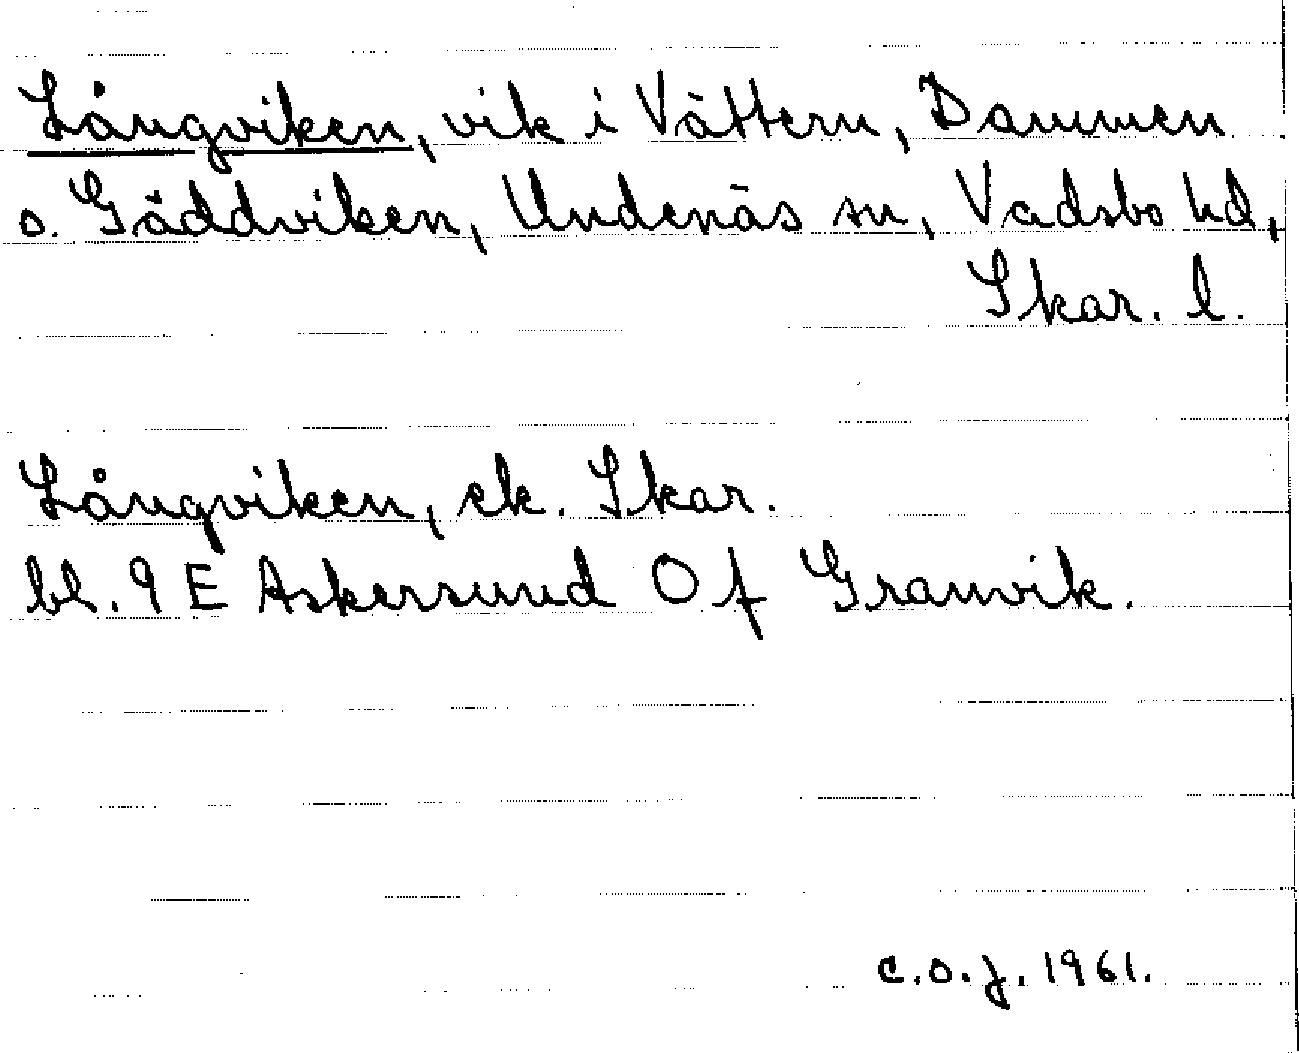 Långviken, vik i Vättern, Dammen
o. Gäddviken, Undenäs sn, Vadsbo hd,
Skar. l.
Långviken, ek. Skar.
bl. 9 E Askersund O f Granvik.
C.O.J. 1961.